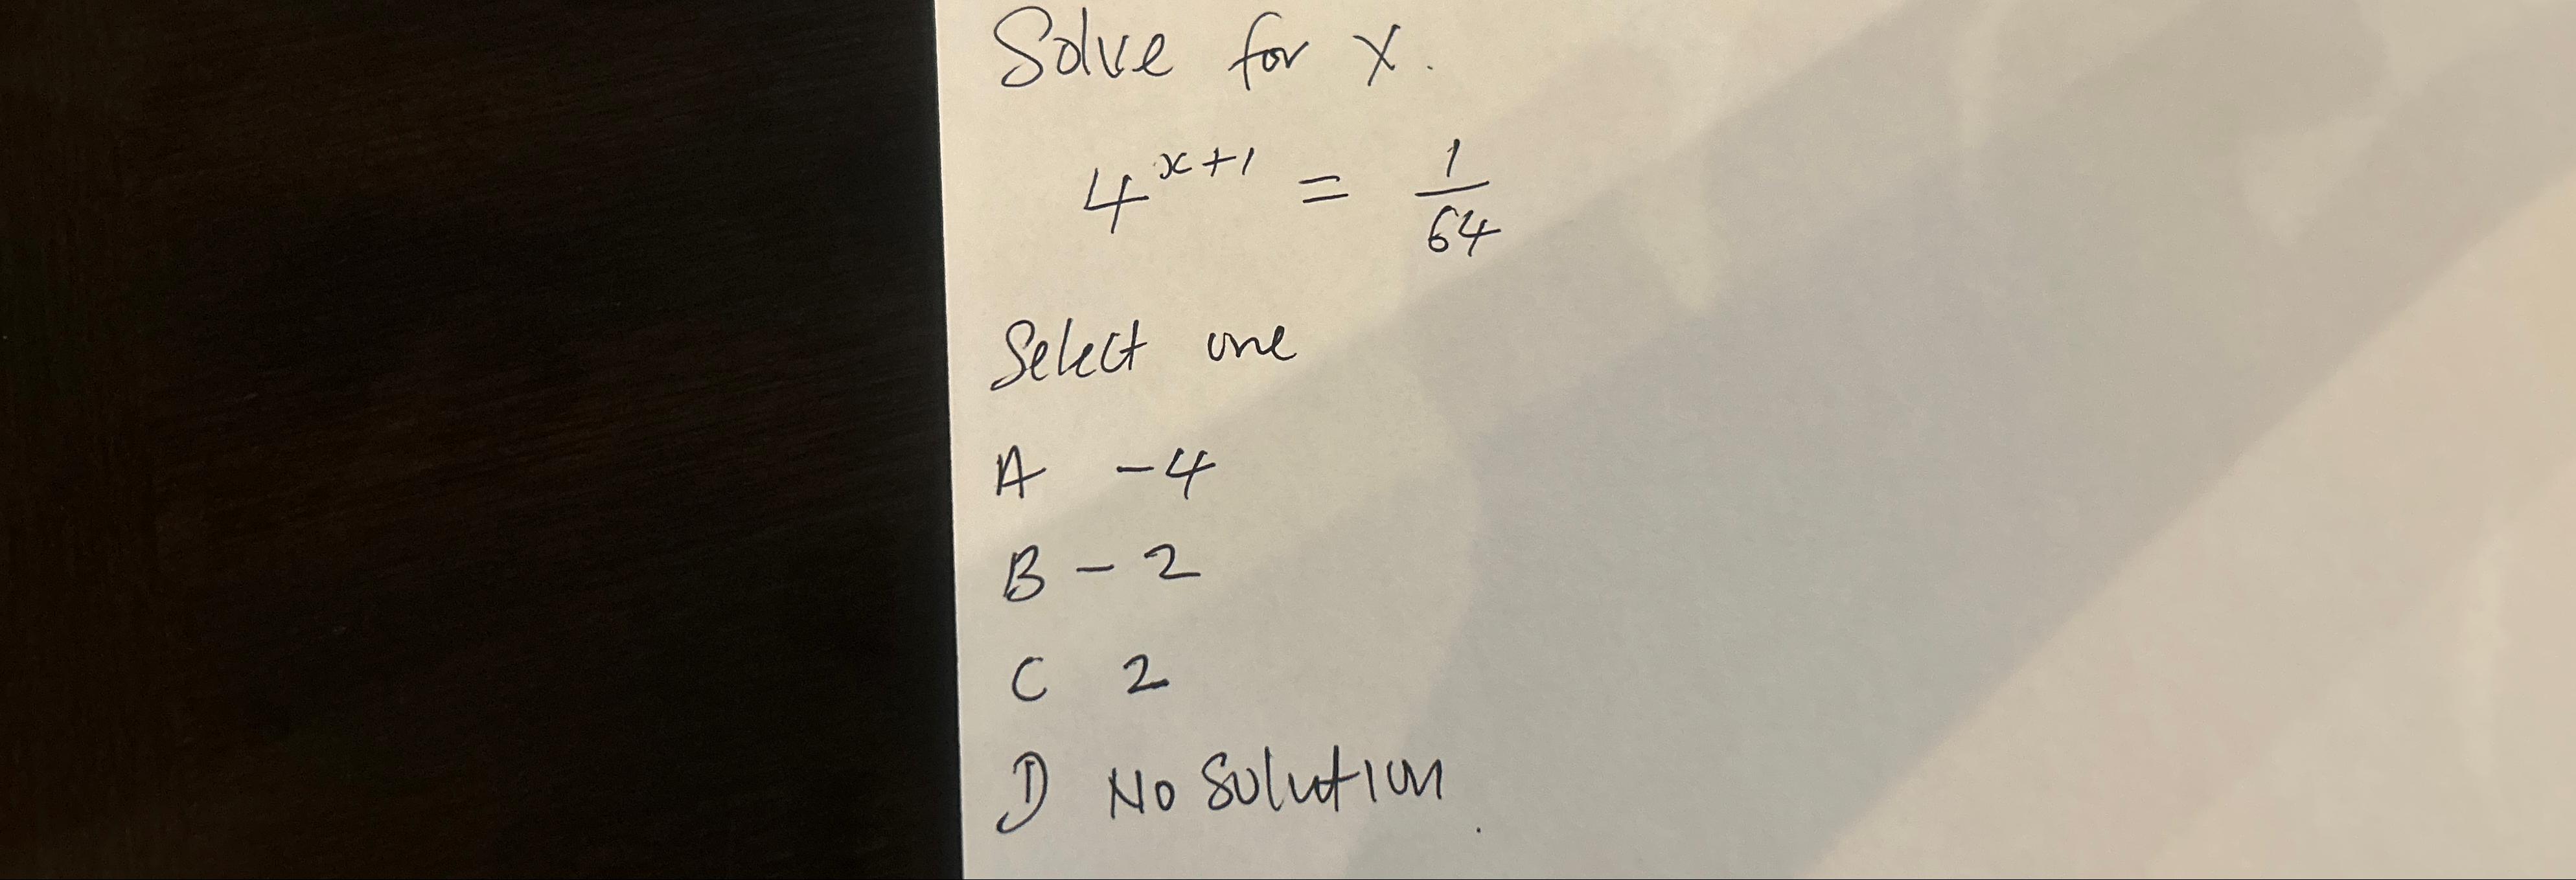 Solve for x.
4^{x+1} = \frac{1}{64}
Select one
A -4
B - 2
C 2
D No Solution.